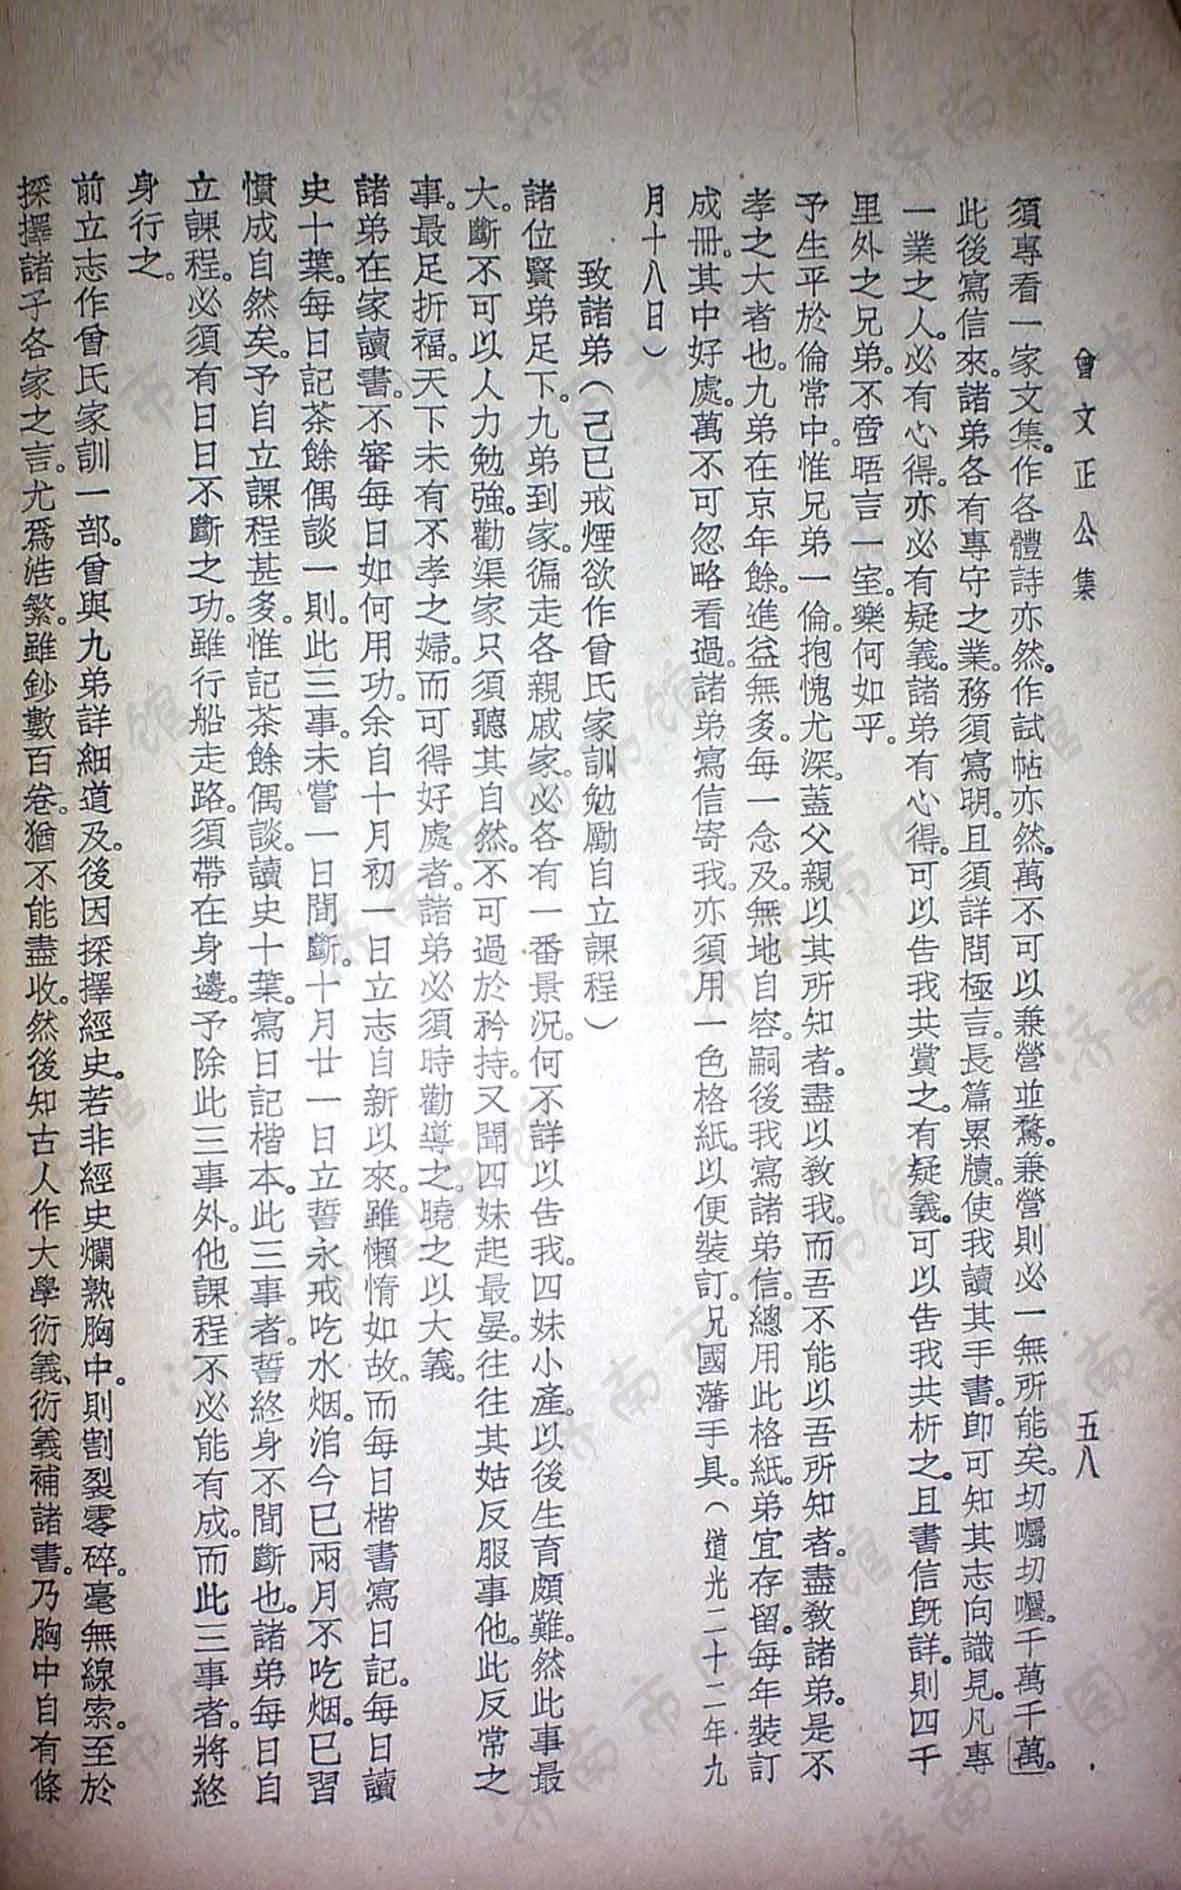 曾文正公集
五八
須專看一家文集。作各體詩亦然。作試帖亦然。萬不可以兼營並騖。兼營則必一無所能矣。切囑切囑。千萬千萬。
此後寫信來。諸弟各有專守之業。務須寫明。且須詳問極言。長篇累牘。使我讀其手書。卽可知其志向識見。凡專
一業之人。必有心得。亦必有疑義。諸弟有心得。可以告我共賞之。有疑義。可以告我共析之。且書信旣詳。則四千
里外之兄弟。不啻晤言一室。樂何如乎。
予生平於倫常中。惟兄弟一倫。抱愧尤深。蓋父親以其所知者。盡以教我。而吾不能以吾所知者。盡教諸弟。是不
孝之大者也。九弟在京年餘。進益無多。每一念及。無地自容。嗣後我寫諸弟信。總用此格紙。弟宜存留。每年裝訂
成冊。其中好處。萬不可忽略看過。諸弟寫信寄我。亦須用一色格紙。以便裝訂。兄國藩手具。(道光二十二年九
月十八日)
致諸弟(己巳戒煙欲作曾氏家訓勉勵自立課程)
諸位賢弟足下。九弟到家。徧走各親戚家。必各有一番景況。何不詳以告我。四妹小產。以後生育頗難。然此事最
大。斷不可以人力勉強。勸渠家只須聽其自然。不可過於矜持。又聞四妹起最晏。往往其姑反服事他。此反常之
事。最足折福。天下未有不孝之婦。而可得好處者。諸弟必須時勸導之。曉之以大義。
諸弟在家讀書。不審每日如何用功。余自十月初一日立志自新以來。雖懶惰如故。而每日楷書寫日記。每日讀
史十葉。每日記茶餘偶談一則。此三事。未嘗一日間斷。十月廿一日立誓永戒吃水烟。洎今已兩月不吃烟。已習
慣成自然矣。予自立課程甚多。惟記茶餘偶談。讀史十葉。寫日記楷本。此三事者。誓終身不間斷也。諸弟每日自
立課程。必須有日日不斷之功。雖行船走路。須帶在身邊。予除此三事外。他課程不必能有成。而此三事者。將終
身行之。
前立志作曾氏家訓一部。曾與九弟詳細道及。後因採擇經史。若非經史爛熟胸中。則割裂零碎。毫無線索。至於
採擇諸子各家之言。尤爲浩繁。雖鈔數百卷。猶不能盡收。然後知古人作大學衍義、衍義補諸書。乃胸中自有條
济南市图书馆